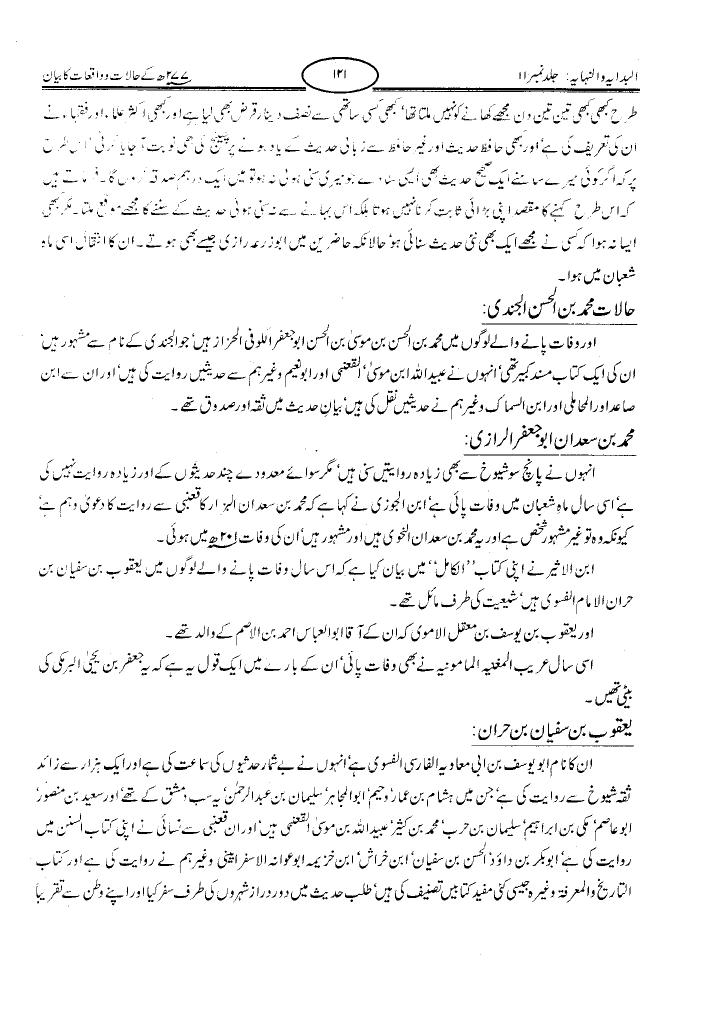 البدایہ والنہایہ: جلد نمبر ۱۱
۱۲۱
۲۷۷ھ کے حالات و واقعات کا بیان
طرح کبھی کبھی تین تین دن مجھے کھانے کو نہیں ملتا تھا' کبھی کسی ساتھی سے نصف دینار قرض بھی لیا ہے اور کبھی اکثر علماء اور فقہاء نے
ان کی تعریف کی ہے' اور بھی حافظ حدیث اور غیر حافظ سے زبانی حدیث کے یاد ہونے پر چیلنج کی بھی نوبت آ جایا کرتی' اس طرح
پر کہ اگر کوئی میرے سامنے ایک صحیح حدیث بھی ایسی سنا دے جو میری سنی ہوئی نہ ہو تو میں ایک درہم صدقہ کروں گا۔ فرماتے ہیں
کہ اس طرح کہنے کا مقصد اپنی بڑائی ثابت کرنا نہیں ہوتا بلکہ اس بہانے سے نہ سنی ہوئی حدیث کے سننے کا مجھے موقع ملتا۔ مگر کبھی
ایسا نہ ہوا کہ کسی نے مجھے ایک بھی نئی حدیث سنائی ہو' حالانکہ حاضرین میں ابوزرعہ رازی جیسے بھی ہوتے۔ ان کا انتقال اسی ماہ
شعبان میں ہوا۔
حالات محمد بن الحسن الجندی:
اور وفات پانے والے لوگوں میں محمد بن الحسن بن موسیٰ بن الحسن ابو جعفر اللوفی الحزاز ہیں' جو الجندی کے نام سے مشہور ہیں'
ان کی ایک کتاب مسند کبیر تھی' انہوں نے عبیداللہ ابن موسیٰ' القعنبی اور ابونعیم وغیرہم سے حدیثیں روایت کی ہیں' اور ان سے ابن
صاعد اور المحاملی اور ابن السماک وغیرہم نے حدیثیں نقل کی ہیں' بیان حدیث میں ثقہ اور صدوق تھے۔
محمد بن سعدان ابو جعفر الرازی:
انہوں نے پانچ سو شیوخ سے بھی زیادہ روایتیں سنی ہیں' مگر سوائے معدودے چند حدیثوں کے اور زیادہ روایت نہیں کی
ہے' اسی سال ماہ شعبان میں وفات پائی ہے' ابن الجوزی نے کہا ہے کہ محمد بن سعدان البزار کا قعنبی سے روایت کا دعویٰ وہم ہے'
کیونکہ وہ تو غیر مشہور شخص ہے اور یہ محمد بن سعدان النحوی ہیں اور مشہور ہیں' ان کی وفات ۲۰۱ھ میں ہوئی۔
ابن الاثیر نے اپنی کتاب ''الکامل'' میں بیان کیا ہے کہ اس سال وفات پانے والے لوگوں میں یعقوب بن سفیان بن
حران الامام الفسوی ہیں' شیعیت کی طرف مائل تھے۔
اور یعقوب بن یوسف بن معقل الاموی کہ ان کے آقا ابوالعباس احمد بن الاصم کے والد تھے۔
اسی سال عریب المغنیہ المامونیہ نے بھی وفات پائی' ان کے بارے میں ایک قول یہ ہے کہ یہ جعفر بن یحییٰ البرمکی کی
بیٹی تھیں۔
یعقوب بن سفیان بن حران:
ان کا نام ابو یوسف بن ابی معاویہ الفارسی الفسوی ہے' انہوں نے بے شمار حدیثوں کی سماعت کی ہے اور ایک ہزار سے زائد
ثقہ شیوخ سے روایت کی ہے' جن میں ہشام بن عمار' دحیم' ابوالمجاہر' سلیمان بن عبدالرحمٰن' یہ سب دمشق کے تھے' اور سعید بن منصور'
ابو عاصم' مکی بن ابراہیم' سلیمان بن حرب' محمد بن کثیر' عبیداللہ بن موسیٰ القعنبی ہیں' اور ان قعنبی سے نسائی نے اپنی کتاب السنن میں
روایت کی ہے' ابوبکر بن داؤد' الحسن بن سفیان' ابن خراش' ابن خزیمہ' ابوعوانہ الاسفرائینی وغیرہم نے روایت کی ہے اور کتاب
التاریخ والمعرفۃ وغیرہ جیسی کئی مفید کتابیں تصنیف کی ہیں' طلب حدیث میں دور دراز شہروں کی طرف سفر کیا اور اپنے وطن سے تقریباً